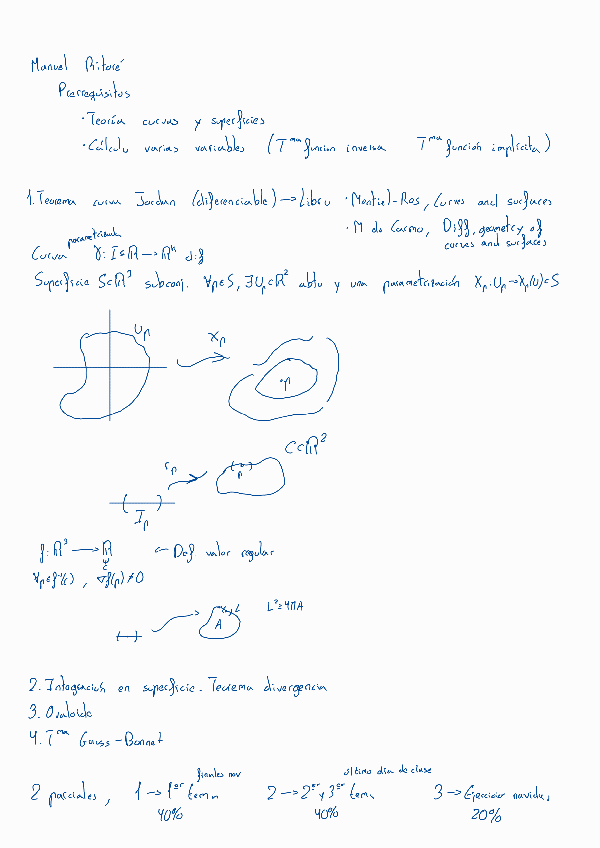 Manuel Ritoré
Prerrequisitos
· Teoría curvas y superficies
· Cálculo varias variables (Tma función inversa Tma función implícita)
1. Teorema curva Jordan (diferenciable) → Libro · Montiel-Ros, Curves and surfaces
· M do Carmo, Diff. geometry of
curves and surfaces
parametrizada
Curva γ: I⊂ℝ → ℝⁿ dif
Superficie S⊂ℝ³ subconj. ∀p∈S, ∃Up⊂ℝ² abto y una parametrización Xp: Up → Xp(U)⊂S
Up
Xp
·p
C⊂ℝ²
p
Ip
f: ℝ³ → ℝ ← Def valor regular
c
∀p∈f⁻¹(c), ∇f(p) ≠ 0
L
A
L²≥4πA
2. Integración en superficie. Teorema divergencia
3. Ovaloide
4. Tma Gauss-Bonnet
finales nov
último día de clase
2 parciales, 1 → 1er tema 2 → 2º y 3er tema 3 → Ejercicios navidad
40% 40% 20%